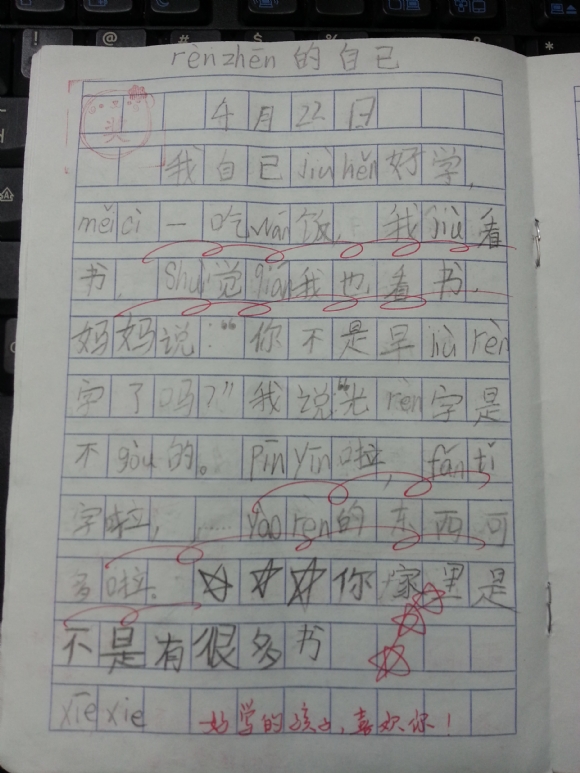 rènzhēn的自己
4月22日
我自己jiù hěn好学,
měi cì一吃wán饭,我jiù看
书,shuì觉qián我也看书.
妈妈说:“你不是早jiù rèn
字了吗?”我说“光rèn字是
不gòu的。pīn yīn啦,fán tǐ
字啦,……yào rèn的东西可
多啦。你家里是
不是有很多书
xiē xie 好学的孩子,喜欢你!